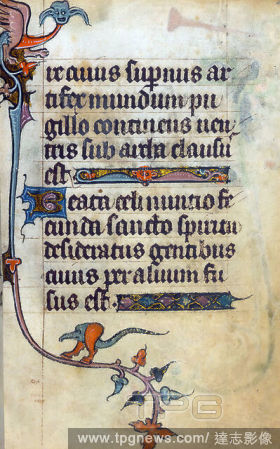 re cuius supnus ar
tifex mundum pu
gillo continens uen
tris sub archa clausus
est
Beata celi nuntio fe
cunda sancto spiritu
desideratus gentibus
cuius per aluum fu
sus est
TPG
www.tpgnews.com/ 達志影像